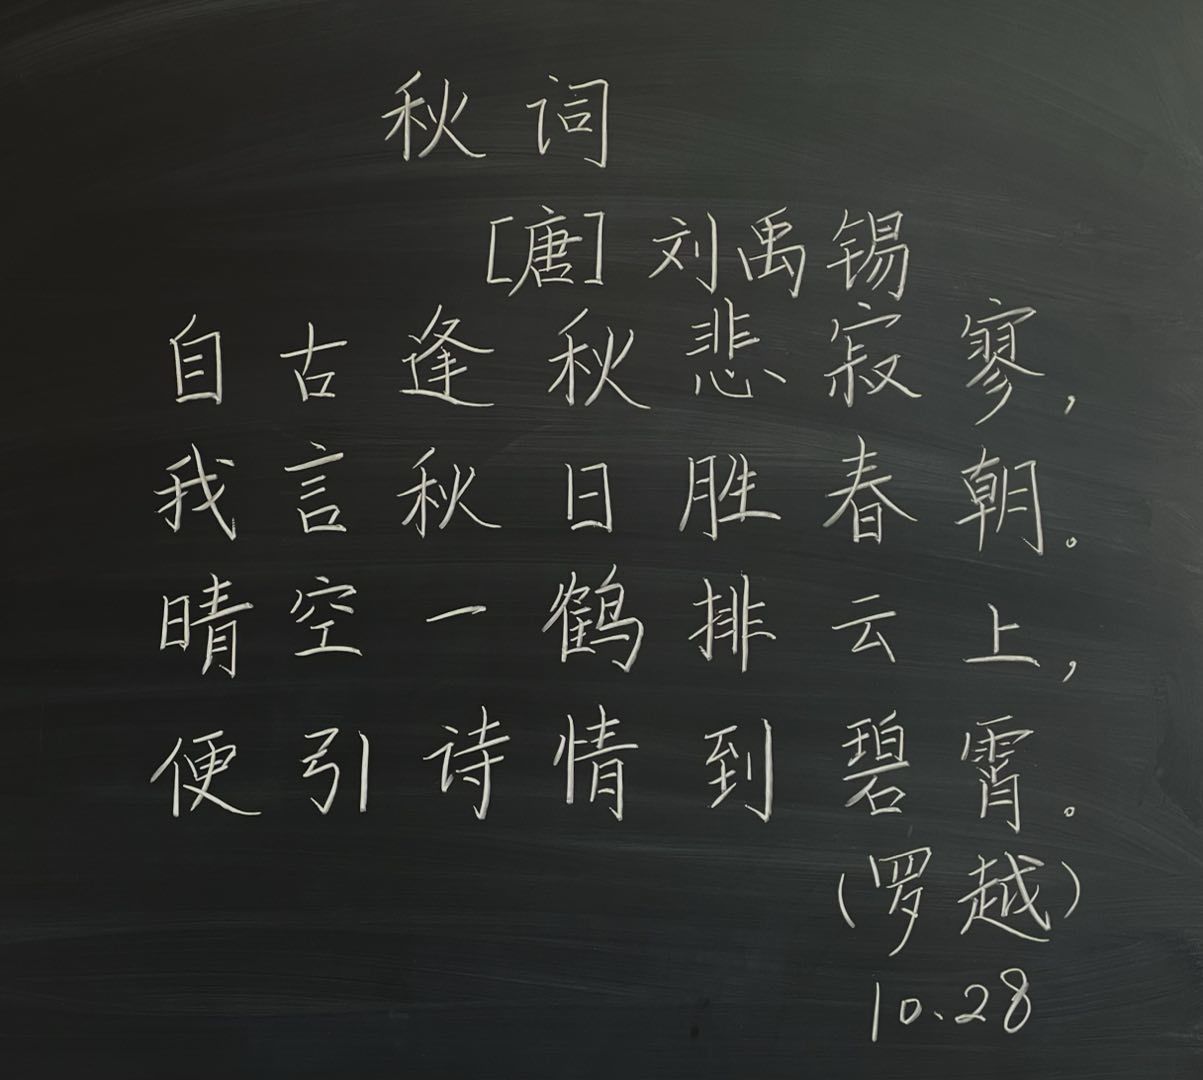 秋词
[唐] 刘禹锡
自古逢秋悲寂寥,
我言秋日胜春朝。
晴空一鹤排云上,
便引诗情到碧霄。
(罗越)
10.28